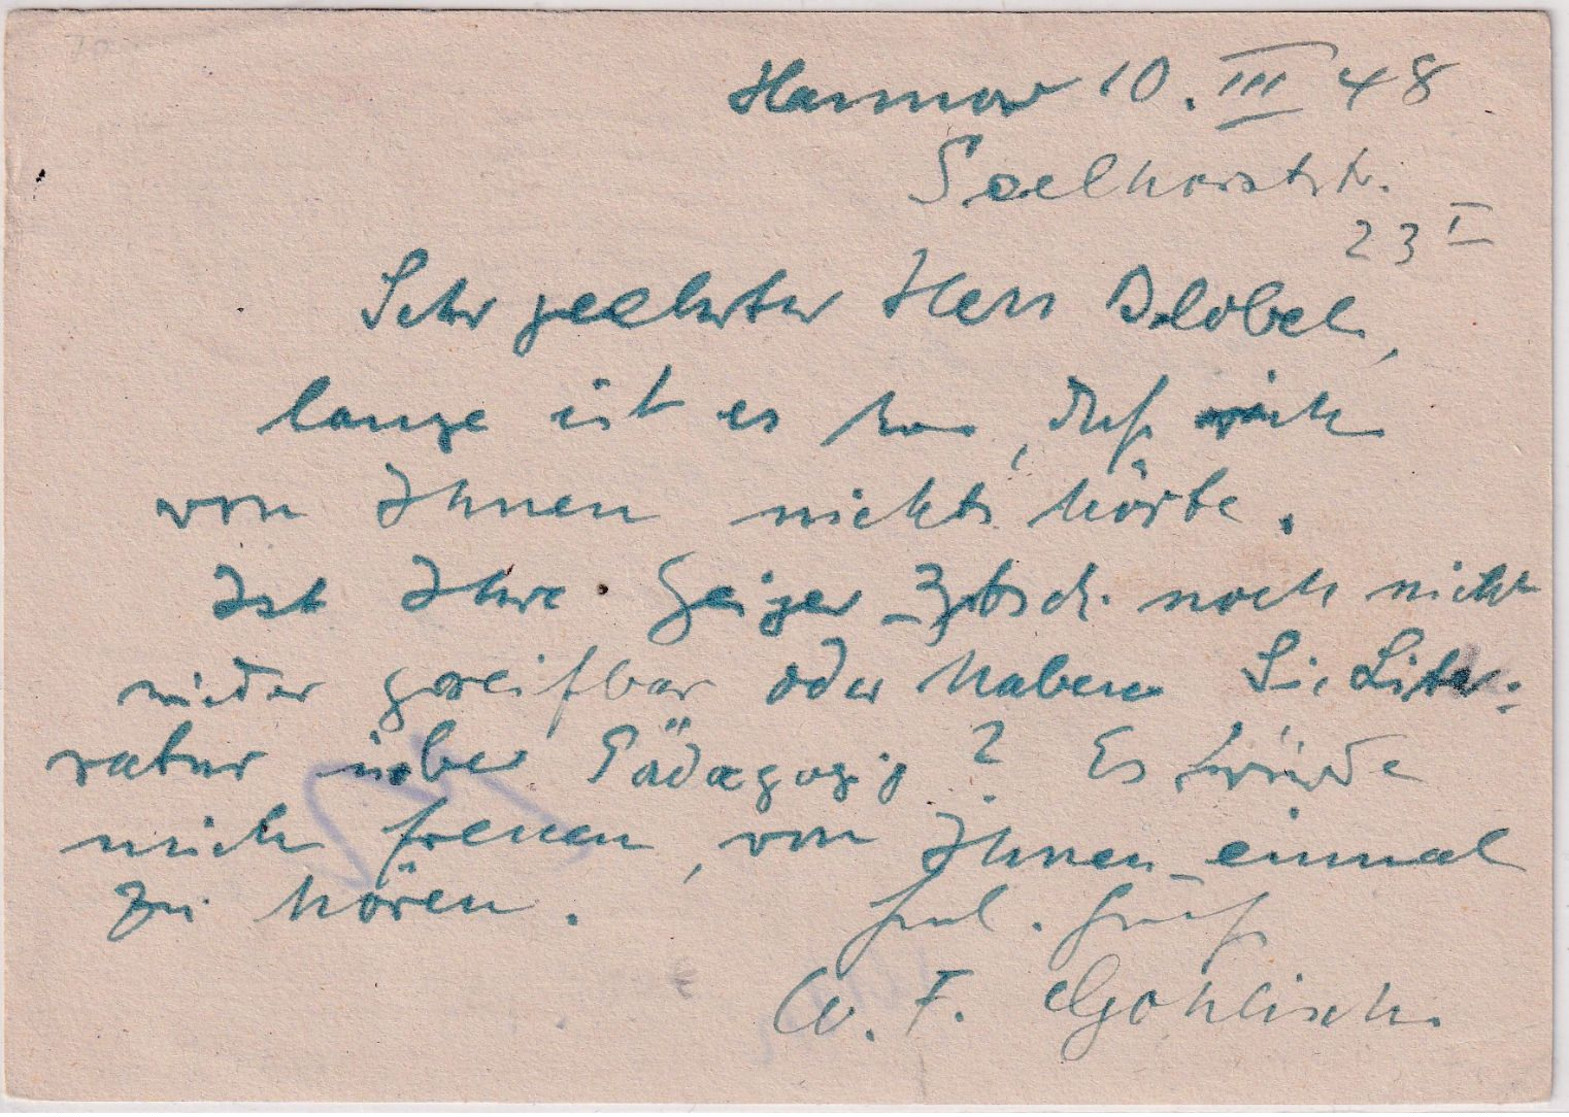 Hannover 10. III 48
Seelhorststr.
23 I
Sehr geehrter Herr
lange ist es her, daß ich
von Ihnen nichts hörte.
Ist Ihre Geiger-Ztsch. noch nicht
wieder greifbar oder haben Sie Lite-
ratur über Pädagogig? Es würde
mich freuen, von Ihnen einmal
zu hören.
frdl. Gruß
W. F. Gohlisch.